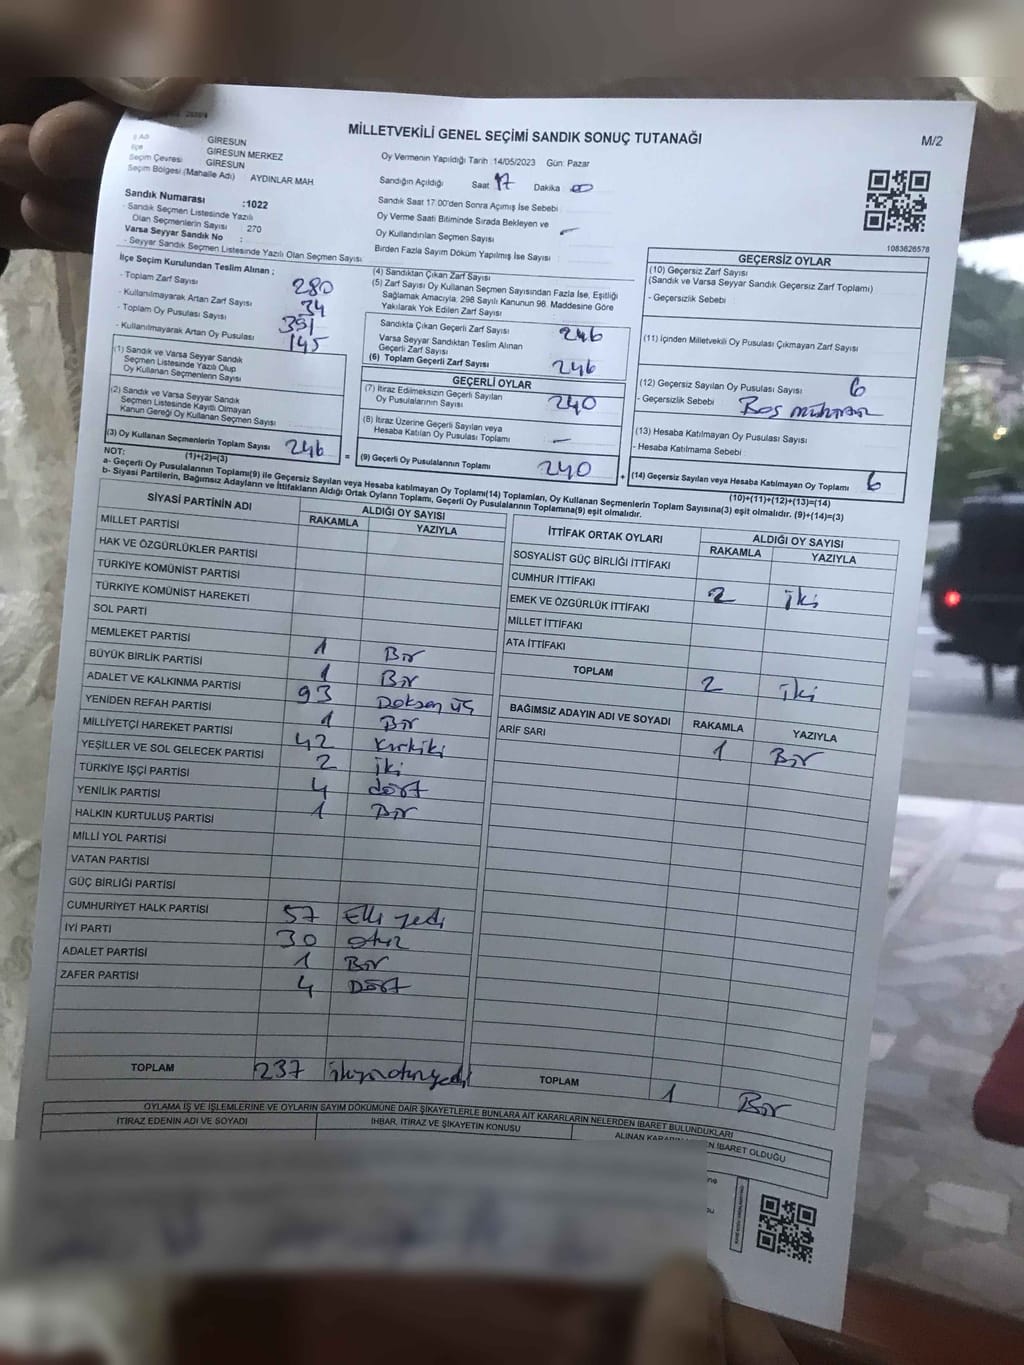 MİLLETVEKİLİ GENEL SEÇİMİ SANDIK SONUÇ TUTANAĞI
M/2
İl Adı : GİRESUN
İlçe : GİRESUN MERKEZ
Seçim Çevresi : GİRESUN
Seçim Bölgesi (Mahalle Adı) : AYDINLAR MAH
Sandık Numarası :1022
- Sandık Seçmen Listesinde Yazılı
Olan Seçmenlerin Sayısı : 270
Varsa Seyyar Sandık No :
- Seyyar Sandık Seçmen Listesinde Yazılı Olan Seçmen Sayısı
Oy Vermenin Yapıldığı Tarih :14/05/2023 Gün: Pazar
Sandığın Açıldığı Saat 17 Dakika 00
Sandık Saat 17:00'den Sonra Açımış İse Sebebi :
Oy Verme Saati Bitiminde Sırada Bekleyen ve
Oy Kullandırılan Seçmen Sayısı : -
Birden Fazla Sayım Döküm Yapılmış İse Sayısı :
1083626578
İlçe Seçim Kurulundan Teslim Alınan ;
- Toplam Zarf Sayısı 280
- Kullanılmayarak Artan Zarf Sayısı 34
- Toplam Oy Pusulası Sayısı 391
- Kullanılmayarak Artan Oy Pusulası 145
(1) Sandık ve Varsa Seyyar Sandık
Seçmen Listesinde Yazılı Olup
Oy Kullanan Seçmenlerin Sayısı
(2) Sandık ve Varsa Seyyar Sandık
Seçmen Listesinde Kayıtlı Olmayan
Kanun Gereği Oy Kullanan Seçmen Sayısı
(3) Oy Kullanan Seçmenlerin Toplam Sayısı 246
(1)+(2)=(3)
(4) Sandıktan Çıkan Zarf Sayısı
(5) Zarf Sayısı Oy Kullanan Seçmen Sayısından Fazla İse, Eşitliği
Sağlamak Amacıyla, 298 Sayılı Kanunun 98. Maddesine Göre
Yakılarak Yok Edilen Zarf Sayısı
Sandıkta Çıkan Geçerli Zarf Sayısı 246
Varsa Seyyar Sandıktan Teslim Alınan
Geçerli Zarf Sayısı
(6) Toplam Geçerli Zarf Sayısı 246
GEÇERLİ OYLAR
(7) İtiraz Edilmeksizin Geçerli Sayılan
Oy Pusulalarının Sayısı 240
(8) İtiraz Üzerine Geçerli Sayılan veya
Hesaba Katılan Oy Pusulası Toplamı -
= (9) Geçerli Oy Pusulalarının Toplamı 240
GEÇERSİZ OYLAR
(10) Geçersiz Zarf Sayısı
(Sandık ve Varsa Seyyar Sandık Geçersiz Zarf Toplamı)
- Geçersizlik Sebebi :
(11) İçinden Milletvekili Oy Pusulası Çıkmayan Zarf Sayısı
(12) Geçersiz Sayılan Oy Pusulası Sayısı 6
- Geçersizlik Sebebi : Boş
(13) Hesaba Katılmayan Oy Pusulası Sayısı
- Hesaba Katılmama Sebebi :
+ (14) Geçersiz Sayılan veya Hesaba Katılmayan Oy Toplamı 6
(10)+(11)+(12)+(13)=(14)
NOT:
a- Geçerli Oy Pusulalarının Toplamı(9) ile Geçersiz Sayılan veya Hesaba katılmayan Oy Toplamı(14) Toplamları, Oy Kullanan Seçmenlerin Toplam Sayısına(3) eşit olmalıdır. (9)+(14)=(3)
b- Siyasi Partilerin, Bağımsız Adayların ve İttifakların Aldığı Ortak Oyların Toplamı, Geçerli Oy Pusulalarının Toplamına(9) eşit olmalıdır.
SİYASİ PARTİNİN ADI
ALDIĞI OY SAYISI
RAKAMLA YAZIYLA
MİLLET PARTİSİ
HAK VE ÖZGÜRLÜKLER PARTİSİ
TÜRKİYE KOMÜNİST PARTİSİ
TÜRKİYE KOMÜNİST HAREKETİ
SOL PARTİ
MEMLEKET PARTİSİ 1 Bir
BÜYÜK BİRLİK PARTİSİ 1 Bir
ADALET VE KALKINMA PARTİSİ 93 Doksan üç
YENİDEN REFAH PARTİSİ 1 Bir
MİLLİYETÇİ HAREKET PARTİSİ 42 Kırkiki
YEŞİLLER VE SOL GELECEK PARTİSİ 2 iki
TÜRKİYE İŞÇİ PARTİSİ 4 dört
YENİLİK PARTİSİ 1 Bir
HALKIN KURTULUŞ PARTİSİ
MİLLİ YOL PARTİSİ
VATAN PARTİSİ
GÜÇ BİRLİĞİ PARTİSİ
CUMHURİYET HALK PARTİSİ 57 Elli yedi
İYİ PARTİ 30 otuz
ADALET PARTİSİ 1 Bir
ZAFER PARTİSİ 4 Dört
TOPLAM 237 ikiyüzotuzyedi
İTTİFAK ORTAK OYLARI
ALDIĞI OY SAYISI
RAKAMLA YAZIYLA
SOSYALİST GÜÇ BİRLİĞİ İTTİFAKI
CUMHUR İTTİFAKI 2 iki
EMEK VE ÖZGÜRLÜK İTTİFAKI
MİLLET İTTİFAKI
ATA İTTİFAKI
TOPLAM 2 iki
BAĞIMSIZ ADAYIN ADI VE SOYADI RAKAMLA YAZIYLA
ARİF SARI 1 Bir
TOPLAM 1 Bir
OYLAMA İŞ VE İŞLEMLERİNE VE OYLARIN SAYIM DÖKÜMÜNE DAİR ŞİKAYETLERLE BUNLARA AİT KARARLARIN NELERDEN İBARET BULUNDUKLARI
İTİRAZ EDENİN ADI VE SOYADI
İHBAR, İTİRAZ VE ŞİKAYETİN KONUSU
ALINAN İBARET OLDUĞU